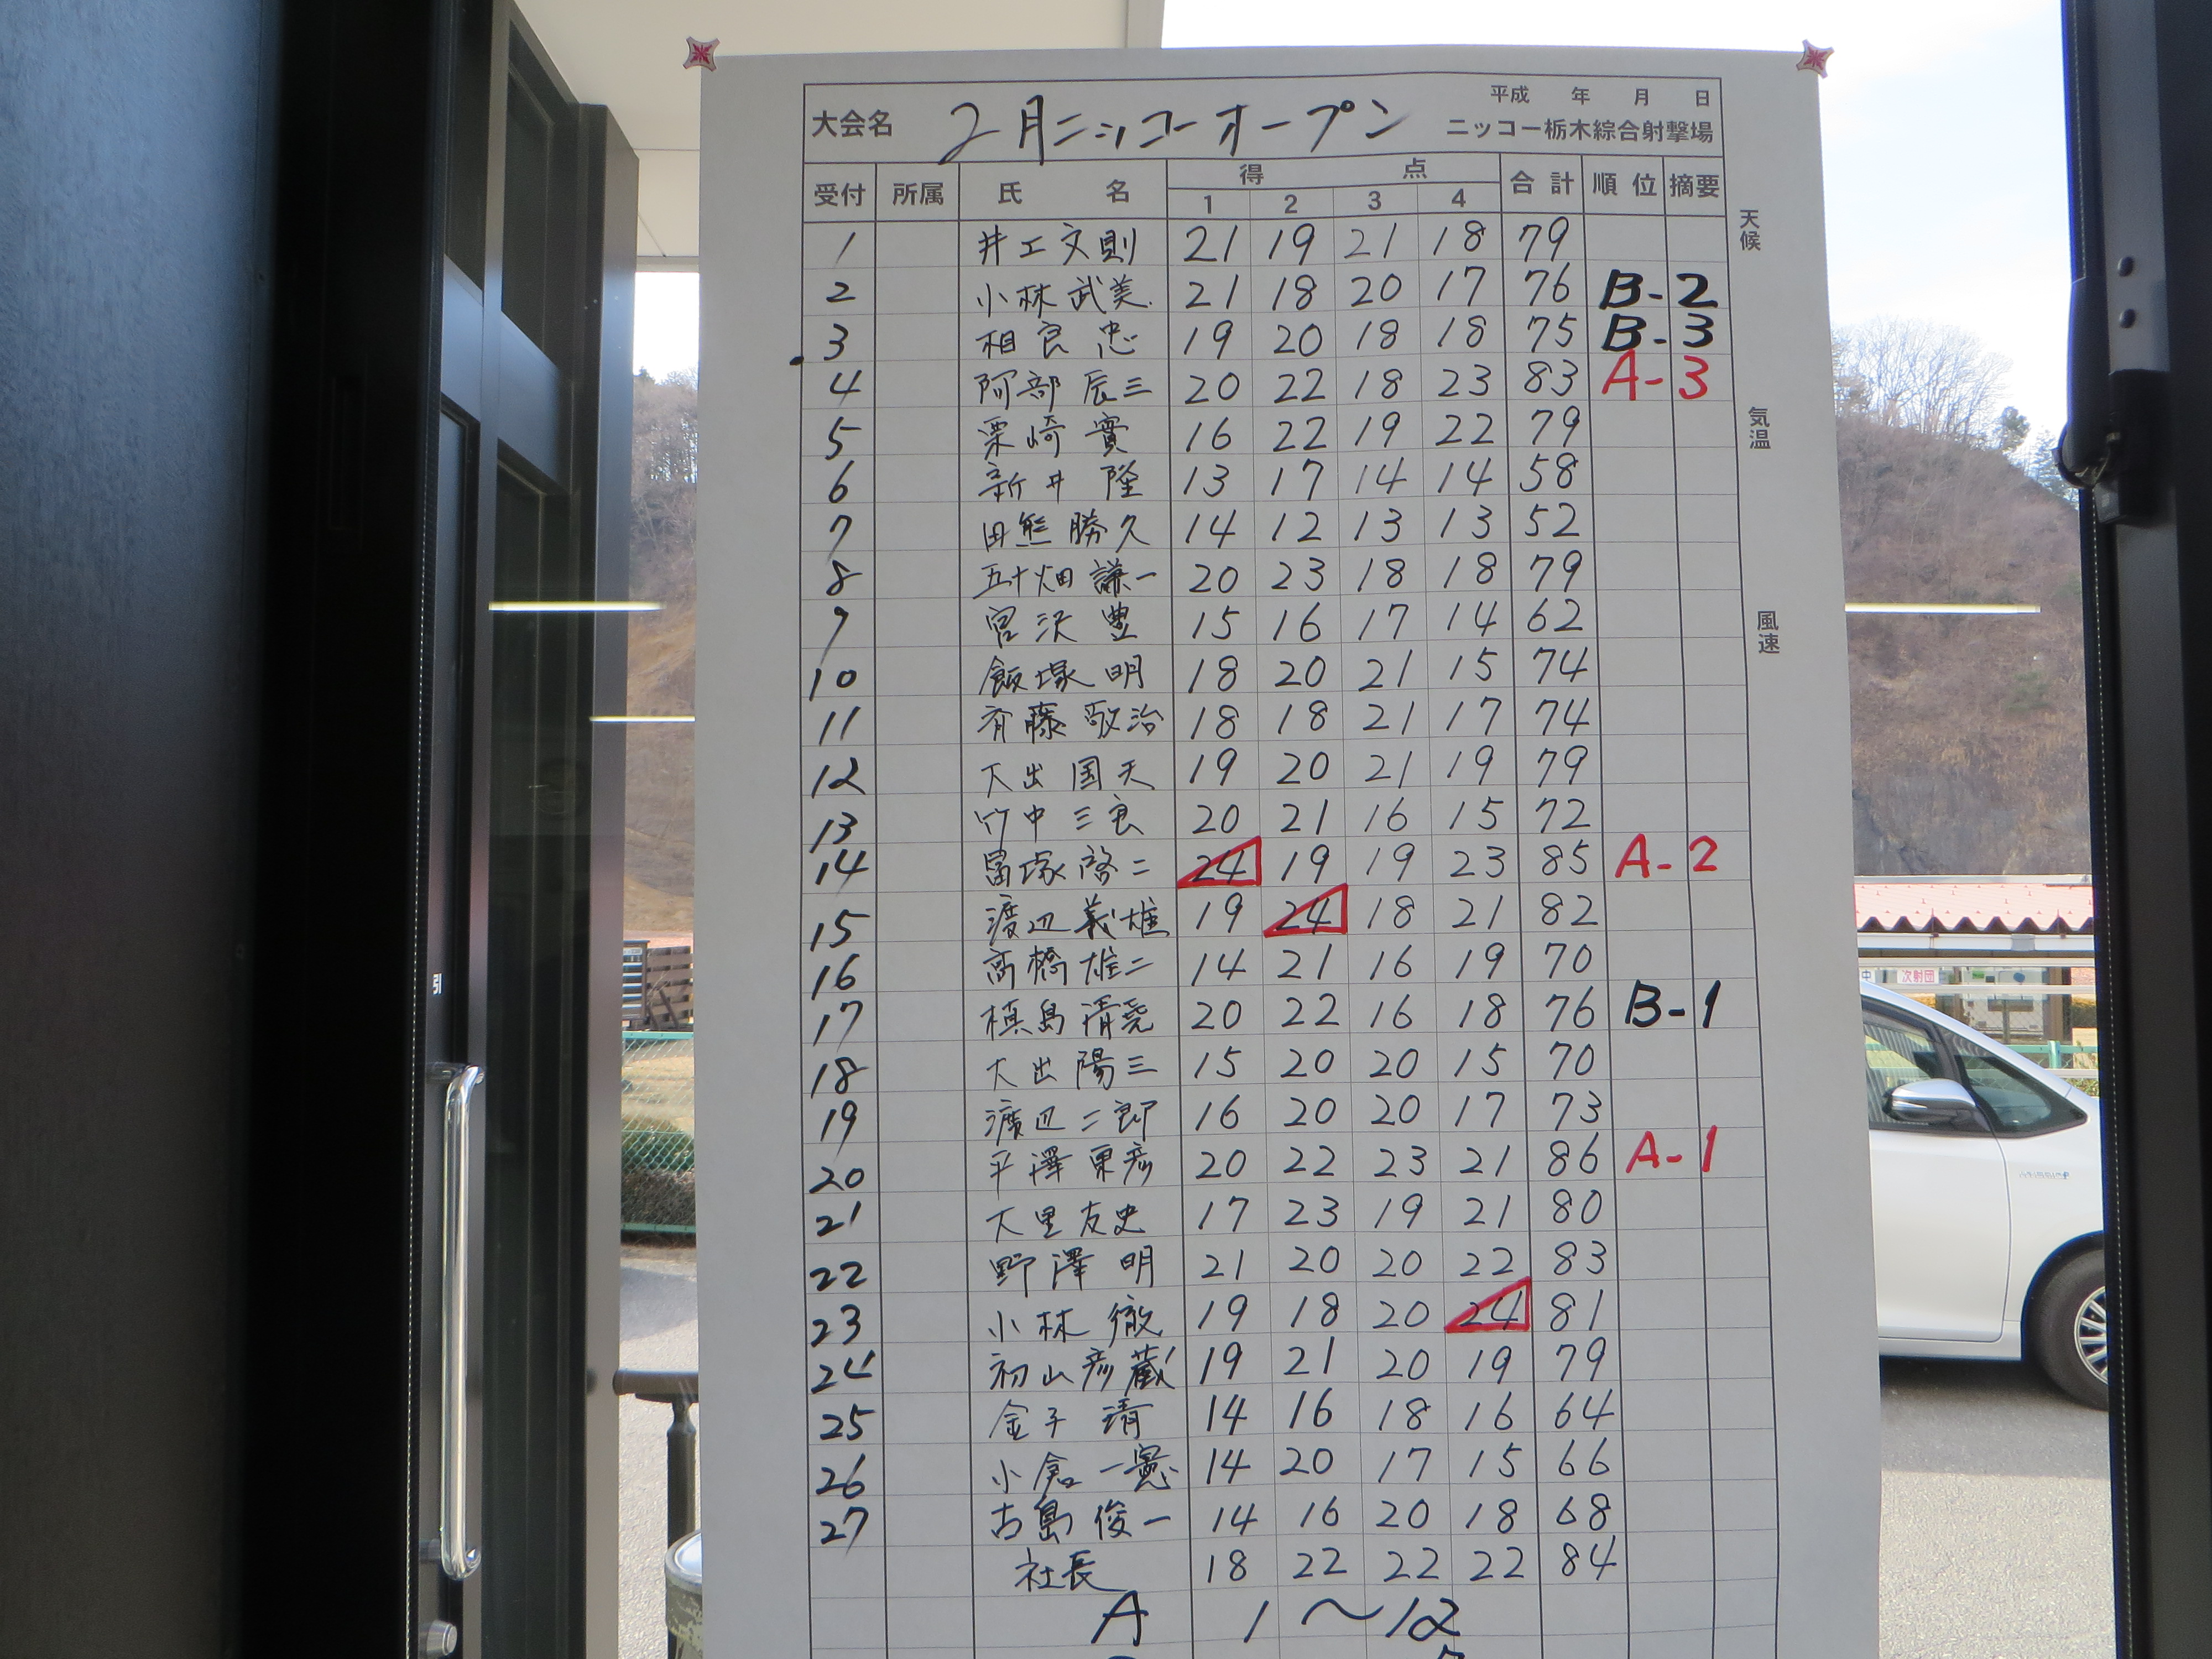 平成 年 月 日
大会名 2月ニッコーオープン ニッコー栃木綜合射撃場
受付 所属 氏名 得点 合計 順位 摘要
1 2 3 4
天候
気温
風速
1 井工文則 21 19 21 18 79
2 小林武美 21 18 20 17 76 B-2
3 相良忠 19 20 18 18 75 B-3
4 阿部辰三 20 22 18 23 83 A-3
5 栗崎實 16 22 19 22 79
6 新井隆 13 17 14 14 58
7 田熊勝久 14 12 13 13 52
8 五十畑謙一 20 23 18 18 79
9 宮沢豊 15 16 17 14 62
10 飯塚明 18 20 21 15 74
11 斉藤敬治 18 18 21 17 74
12 大出国夫 19 20 21 19 79
13 竹中三良 20 21 16 15 72
14 冨塚啓二 24 19 19 23 85 A-2
15 渡辺義雄 19 24 18 21 82
16 高橋雄二 14 21 16 19 70
17 槙島清尭 20 22 16 18 76 B-1
18 大出陽三 15 20 20 15 70
19 渡辺二郎 16 20 20 17 73
20 平澤東彦 20 22 23 21 86 A-1
21 大里友史 17 23 19 21 80
22 野澤明 21 20 20 22 83
23 小林徹 19 18 20 24 81
24 初山彦蔵 19 21 20 19 79
25 金子清 14 16 18 16 64
26 小倉一憲 14 20 17 15 66
27 古島俊一 14 16 20 18 68
社長 18 22 22 22 84
A 1〜12
引
次射団